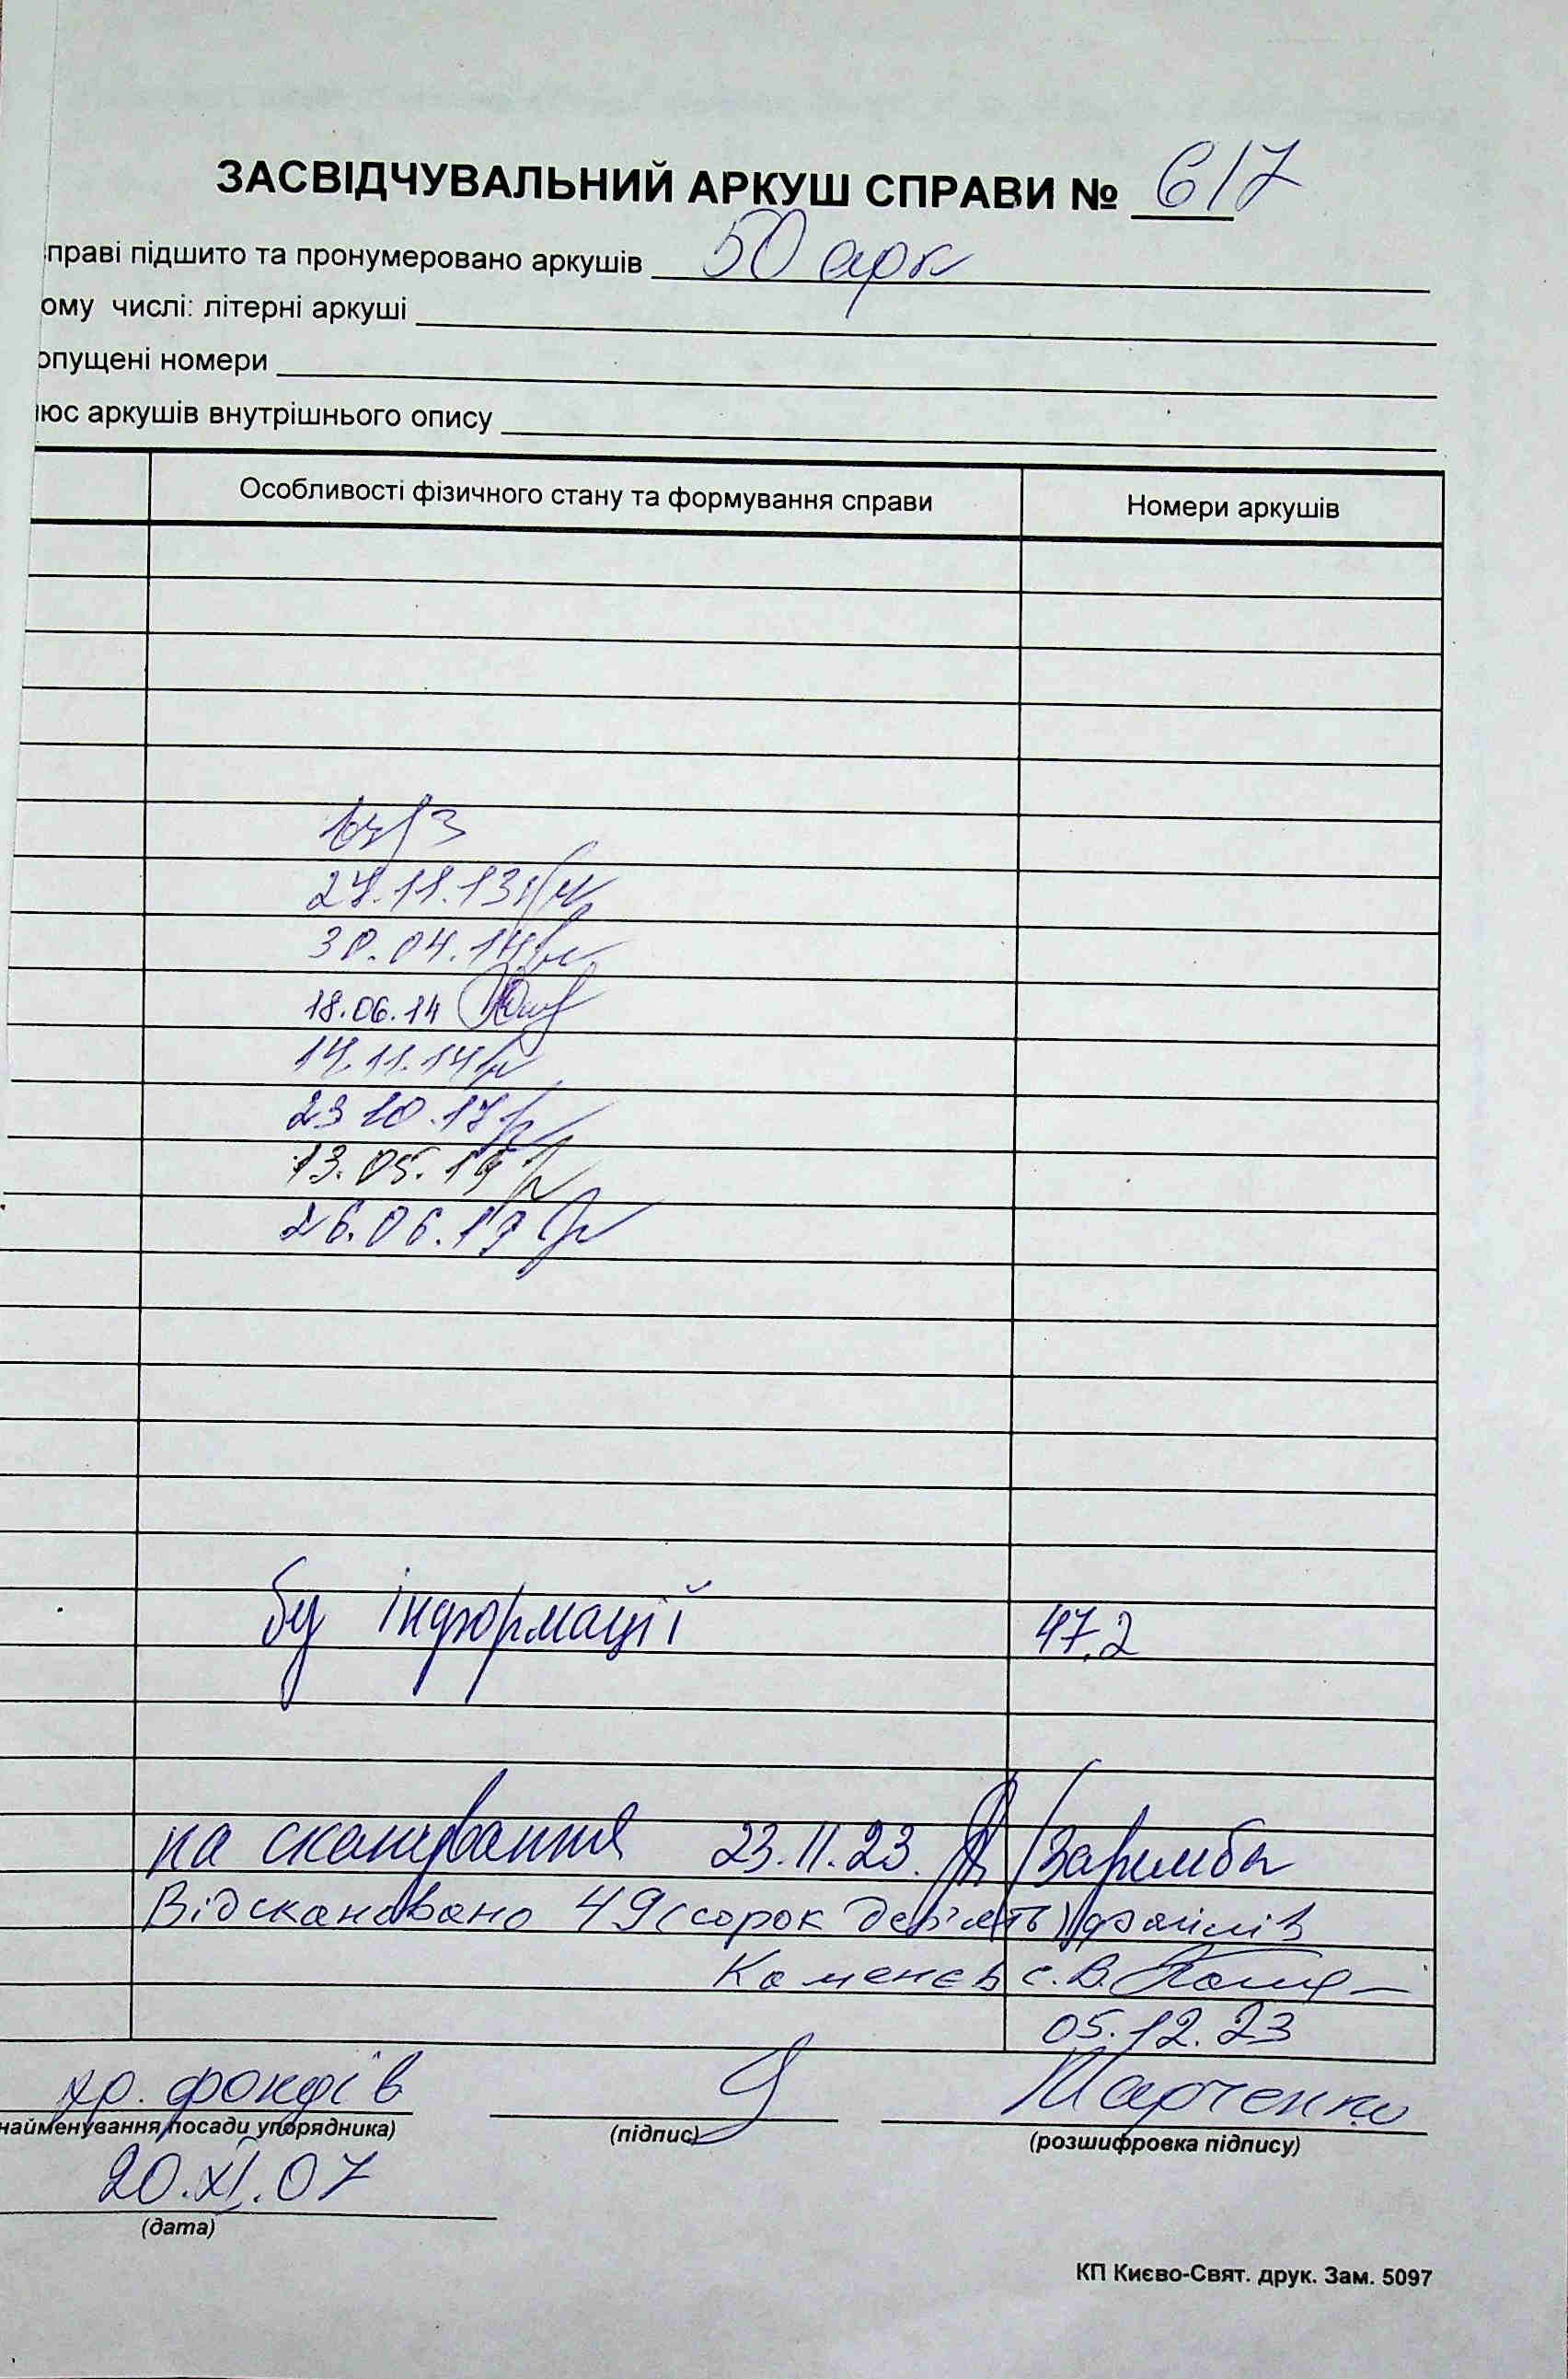 ЗАСВІДЧУВАЛЬНИЙ АРКУШ СПРАВИ № 617
праві підшито та пронумеровано аркушів 50 арк
ому числі: літерні аркуші
опущені номери
люс аркушів внутрішнього опису
Особливості фізичного стану та формування справи Номери аркушів
27.11.13
30.04.14
18.06.14
14.11.14
23 10.17
13.05.19
26.06.19
бу інформації 47.2
на сканування 23.11.23. Заремба
Відскановано 49 (сорок дев'ять) файлів
Каменєв С.В.
05.12.23
хр. фондів Марченко
найменування посади упорядника) (підпис) (розшифровка підпису)
20.XI.07
(дата)
КП Києво-Свят. друк. Зам. 5097